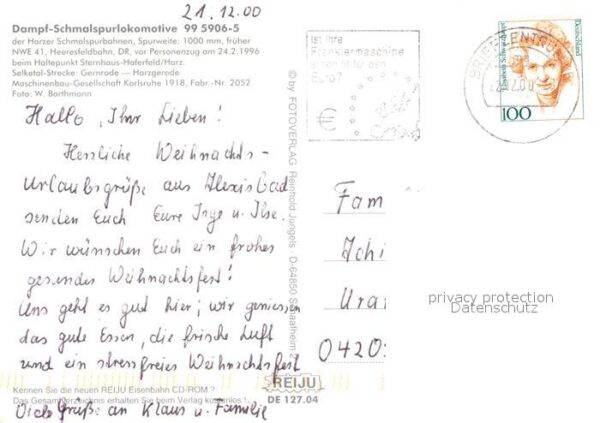 21.12.00
Dampf-Schmalspurlokomotive 99 5906-5
der Harzer Schmalspurbahnen, Spurweite: 1000 mm, früher
NWE 41, Heeresfeldbahn, DR, vor Personenzug am 24.2.1996
beim Haltepunkt Sternhaus-Haferfeld/Harz.
Selketal-Strecke: Gernrode — Harzgerode
Maschinenbau-Gesellschaft Karlsruhe 1918, Fabr.-Nr. 2052
Foto: W. Barthmann
Hallo, Ihr Lieben!
Herzliche Weihnachts-
urlaubsgrüße aus Alexisbad
senden Euch Eure Inge u. Ilse.
Wir wünschen Euch ein frohes
gesundes Weihnachtsfest!
Uns geht es gut hier; wir geniessen
das gute Essen, die frische Luft
und ein stressfreies Weihnachtsfest
Kennen Sie die neuen REIJU Eisenbahn CD-ROM ?
Das Gesamtverzeichnis erhalten Sie beim Verlag kostenlos !
Viele Grüße an Klaus u. Familie
© by FOTOVERLAG Reinhold Jungels D-64850
REIJU
DE 127.04
Ist Ihre
Frankiermaschine
schon fit für den
Euro?
€
BRIEFZENTRUM
Deutschland
100
Fam
Ichi
Ura
0420
privacy protection
Datenschutz